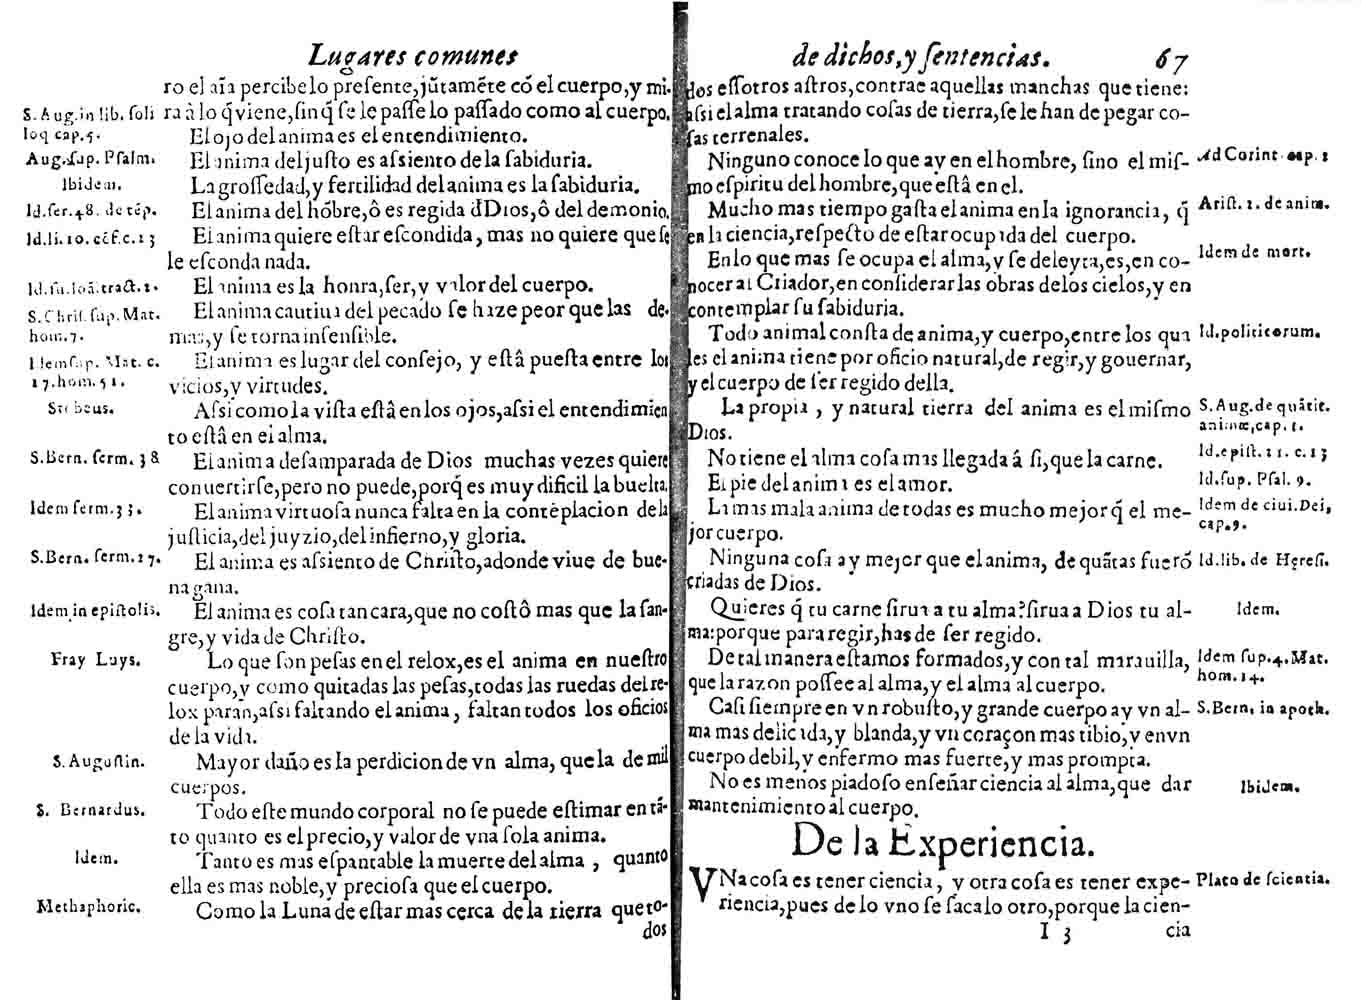 Lugares comunes
ro el aĩa percibe lo preſente, jũtamẽte cõ el cuerpo, y mi-
S. Aug. in lib. ſoli ra à lo q̃ viene, ſin q̃ ſe le paſſe lo paſſado como al cuerpo.
loq cap. 5. El ojo del anima es el entendimiento.
Aug. ſup. Pſalm. El anima del juſto es aſsiento de la ſabiduria.
Ibidem. La groſſedad, y fertilidad del anima es la ſabiduria.
Id. ſer. 48. de tẽp. El anima del hõbre, ô es regida d̃ Dios, ô del demonio.
Id. li. 10. cõf. c. 23 El anima quiere eſtar eſcondida, mas no quiere que ſe
le eſconda nada.
Id. ſu. Ioã. tract. 2. El anima es la honra, ſer, y valor del cuerpo.
S. Chriſ. ſup. Mat. El anima cautiua del pecado ſe haze peor que las de-
hom. 7. mas, y ſe torna inſenſible.
Idem ſup. Mat. c. El anima es lugar del conſejo, y eſtâ pueſta entre los
17. hom. 51. vicios, y virtudes.
Stobeus. Aſsi como la viſta eſtâ en los ojos, aſsi el entendimien
to eſtâ en el alma.
S. Bern. ſerm. 38 El anima deſamparada de Dios muchas vezes quiere
conuertirſe, pero no puede, porq̃ es muy dificil la buelta.
Idem ſerm. 33. El anima virtuoſa nunca falta en la contẽplacion de la
juſticia, del juyzio, del infierno, y gloria.
S. Bern. ſerm. 27. El anima es aſsiento de Chriſto, adonde viue de bue-
na gana.
Idem in epiſtolis. El anima es coſa tan cara, que no coſtô mas que la ſan-
gre, y vida de Chriſto.
Fray Luys. Lo que ſon peſas en el relox, es el anima en nueſtro
cuerpo, y como quitadas las peſas, todas las ruedas del re-
lox paran, aſsi faltando el anima, faltan todos los oficios
de la vida.
S. Auguſtin. Mayor daño es la perdicion de vn alma, que la de mil
cuerpos.
S. Bernardus. Todo eſte mundo corporal no ſe puede eſtimar en tã-
to quanto es el precio, y valor de vna ſola anima.
Idem. Tanto es mas eſpantable la muerte del alma, quanto
ella es mas noble, y precioſa que el cuerpo.
Methaphoric. Como la Luna de eſtar mas cerca de la tierra que to-
dos
de dichos, y ſentencias. 67
dos eſſotros aſtros, contrae aquellas manchas que tiene:
aſsi el alma tratando coſas de tierra, ſe le han de pegar co-
ſas terrenales.
Ninguno conoce lo que ay en el hombre, ſino el miſ- Ad Corint. cap. 2
mo eſpiritu del hombre, que eſtâ en el.
Mucho mas tiempo gaſta el anima en la ignorancia, q̃ Ariſt. 2. de anim.
en la ciencia, reſpecto de eſtar ocupada del cuerpo.
En lo que mas ſe ocupa el alma, y ſe deleyta, es, en co- Idem de mort.
nocer al Criador, en conſiderar las obras de los cielos, y en
contemplar ſu ſabiduria.
Todo animal conſta de anima, y cuerpo, entre los qua Id. politicorum.
les el anima tiene por oficio natural, de regir, y gouernar,
y el cuerpo de ſer regido della.
La propia, y natural tierra del anima es el miſmo S. Aug. de quãtit.
Dios. animæ, cap. 1.
No tiene el alma coſa mas llegada â ſi, que la carne. Id. epiſt. 21. c. 13
El pie del anima es el amor. Id. ſup. Pſal. 9.
La mas mala anima de todas es mucho mejor q̃ el me- Idem de ciui. Dei,
jor cuerpo. cap. 9.
Ninguna coſa ay mejor que el anima, de quãtas fuerõ Id. lib. de Hęreſi.
criadas de Dios.
Quieres q̃ tu carne ſirua a tu alma? ſirua a Dios tu al- Idem.
ma: porque para regir, has de ſer regido.
De tal manera eſtamos formados, y con tal marauilla, Idem ſup. 4. Mat.
que la razon poſſee al alma, y el alma al cuerpo. hom. 14.
Caſi ſiempre en vn robuſto, y grande cuerpo ay vn al- S. Bern. in apoth.
ma mas delicada, y blanda, y vn coraçon mas tibio, y en vn
cuerpo debil, y enfermo mas fuerte, y mas prompta.
No es menos piadoſo enſeñar ciencia al alma, que dar Ibidem.
mantenimiento al cuerpo.
De la Experiencia.
VNa coſa es tener ciencia, y otra coſa es tener expe- Plato de ſcientia.
riencia, pues de lo vno ſe ſaca lo otro, porque la cien-
I 3 cia